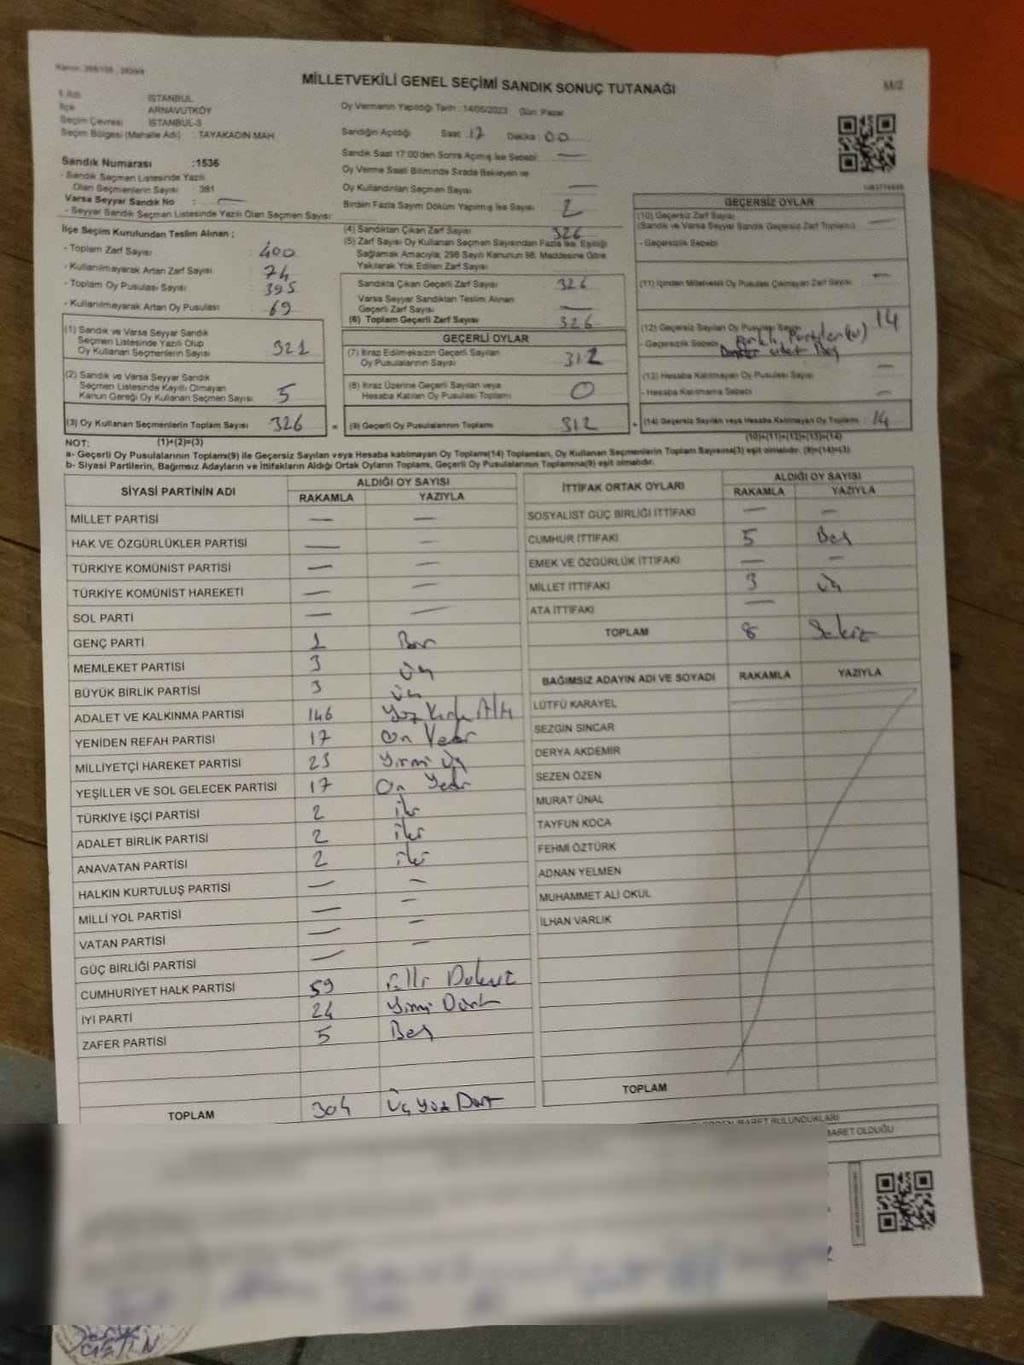 MİLLETVEKİLİ GENEL SEÇİMİ SANDIK SONUÇ TUTANAĞI
İSTANBUL
İlçe ARNAVUTKÖY
Seçim Çevresi İSTANBUL-3
Seçim Bölgesi (Mahalle Adı) : TAYAKADIN MAH.
Oy Vermenin Yapıldığı Tarih : 14/05/2023 Gün: Pazar
Sandığın Açıldığı Saat: 17 Dakika: 00
Sandık Numarası :1536
- Sandık Seçmen Listesinde Yazılı
Olan Seçmenlerin Sayısı 381
Varsa Seyyar Sandık No : —
- Seyyar Sandık Seçmen Listesinde Yazılı Olan Seçmen Sayısı:
Sandık Saat 17:00'den Sonra Açılmış İse Sebebi: —
Oy Verme Saati Bitiminde Sırada Bekleyen ve
Oy Kullandırılan Seçmen Sayısı —
Birden Fazla Sayım Döküm Yapılmış İse Sayısı 2
İlçe Seçim Kurulundan Teslim Alınan ;
- Toplam Zarf Sayısı : 400
- Kullanılmayarak Artan Zarf Sayısı : 74
- Toplam Oy Pusulası Sayısı : 395
- Kullanılmayarak Artan Oy Pusulası : 69
(1) Sandık ve Varsa Seyyar Sandık
Seçmen Listesinde Yazılı Olup
Oy Kullanan Seçmenlerin Sayısı 321
(2) Sandık ve Varsa Seyyar Sandık
Seçmen Listesinde Kayıtlı Olmayan
Kanun Gereği Oy Kullanan Seçmen Sayısı 5
(3) Oy Kullanan Seçmenlerin Toplam Sayısı 326
(4) Sandıktan Çıkan Zarf Sayısı 326
(5) Zarf Sayısı Oy Kullanan Seçmen Sayısından Fazla İse, Eşitliği
Sağlamak Amacıyla; 298 Sayılı Kanunun 98. Maddesine Göre
Yakılarak Yok Edilen Zarf Sayısı
Sandıkta Çıkan Geçerli Zarf Sayısı 326
Varsa Seyyar Sandıktan Teslim Alınan
Geçerli Zarf Sayısı —
(6) Toplam Geçerli Zarf Sayısı 326
GEÇERLİ OYLAR
(7) İtiraz Edilmeksizin Geçerli Sayılan
Oy Pusulalarının Sayısı 312
(8) İtiraz Üzerine Geçerli Sayılan veya
Hesaba Katılan Oy Pusulası Toplamı 0
(9) Geçerli Oy Pusulalarının Toplamı 312
GEÇERSİZ OYLAR
(10) Geçersiz Zarf Sayısı —
(Sandık ve Varsa Seyyar Sandık Geçersiz Zarf Toplamı)
- Geçersizlik Sebebi
(11) İçinden Milletvekili Oy Pusulası Çıkmayan Zarf Sayısı —
(12) Geçersiz Sayılan Oy Pusulası Sayısı 14
- Geçersizlik Sebebi
(13) Hesaba Katılmayan Oy Pusulası Sayısı —
- Hesaba Katılmama Sebebi —
(14) Geçersiz Sayılan veya Hesaba Katılmayan Oy Toplamı : 14
NOT: (1)+(2)=(3) (10)+(11)+(12)+(13)=(14)
a- Geçerli Oy Pusulalarının Toplamı(9) ile Geçersiz Sayılan veya Hesaba Katılmayan Oy Toplamı(14) Toplamları, Oy Kullanan Seçmenlerin Toplam Sayısına(3) eşit olmalıdır. (9)+(14)=(3)
b- Siyasi Partilerin, Bağımsız Adayların ve İttifakların Aldığı Ortak Oyların Toplamı, Geçerli Oy Pusulalarının Toplamına(9) eşit olmalıdır.
SİYASİ PARTİNİN ADI ALDIĞI OY SAYISI
RAKAMLA YAZIYLA
MİLLET PARTİSİ — —
HAK VE ÖZGÜRLÜKLER PARTİSİ — —
TÜRKİYE KOMÜNİST PARTİSİ — —
TÜRKİYE KOMÜNİST HAREKETİ — —
SOL PARTİ — —
GENÇ PARTİ 1 Bir
MEMLEKET PARTİSİ 3 üç
BÜYÜK BİRLİK PARTİSİ 3 üç
ADALET VE KALKINMA PARTİSİ 146 Yüz Kırk Altı
YENİDEN REFAH PARTİSİ 17 On Yedi
MİLLİYETÇİ HAREKET PARTİSİ 23 Yirmi Üç
YEŞİLLER VE SOL GELECEK PARTİSİ 17 On Yedi
TÜRKİYE İŞÇİ PARTİSİ 2 iki
ADALET BİRLİK PARTİSİ 2 iki
ANAVATAN PARTİSİ 2 iki
HALKIN KURTULUŞ PARTİSİ — —
MİLLİ YOL PARTİSİ — —
VATAN PARTİSİ — —
GÜÇ BİRLİĞİ PARTİSİ — —
CUMHURİYET HALK PARTİSİ 59 Elli Dokuz
İYİ PARTİ 24 Yirmi Dört
ZAFER PARTİSİ 5 Beş
TOPLAM 304 Üç Yüz Dört
İTTİFAK ORTAK OYLARI ALDIĞI OY SAYISI
RAKAMLA YAZIYLA
SOSYALİST GÜÇ BİRLİĞİ İTTİFAKI — —
CUMHUR İTTİFAKI 5 Beş
EMEK VE ÖZGÜRLÜK İTTİFAKI — —
MİLLET İTTİFAKI 3 üç
ATA İTTİFAKI —
TOPLAM 8 Sekiz
BAĞIMSIZ ADAYIN ADI VE SOYADI RAKAMLA YAZIYLA
LÜTFÜ KARAYEL
SEZGİN SINCAR
DERYA AKDEMİR
SEZEN ÖZEN
MURAT ÜNAL
TAYFUN KOCA
FEHMİ ÖZTÜRK
ADNAN YELMEN
MUHAMMET ALİ OKUL
İLHAN VARLIK
TOPLAM